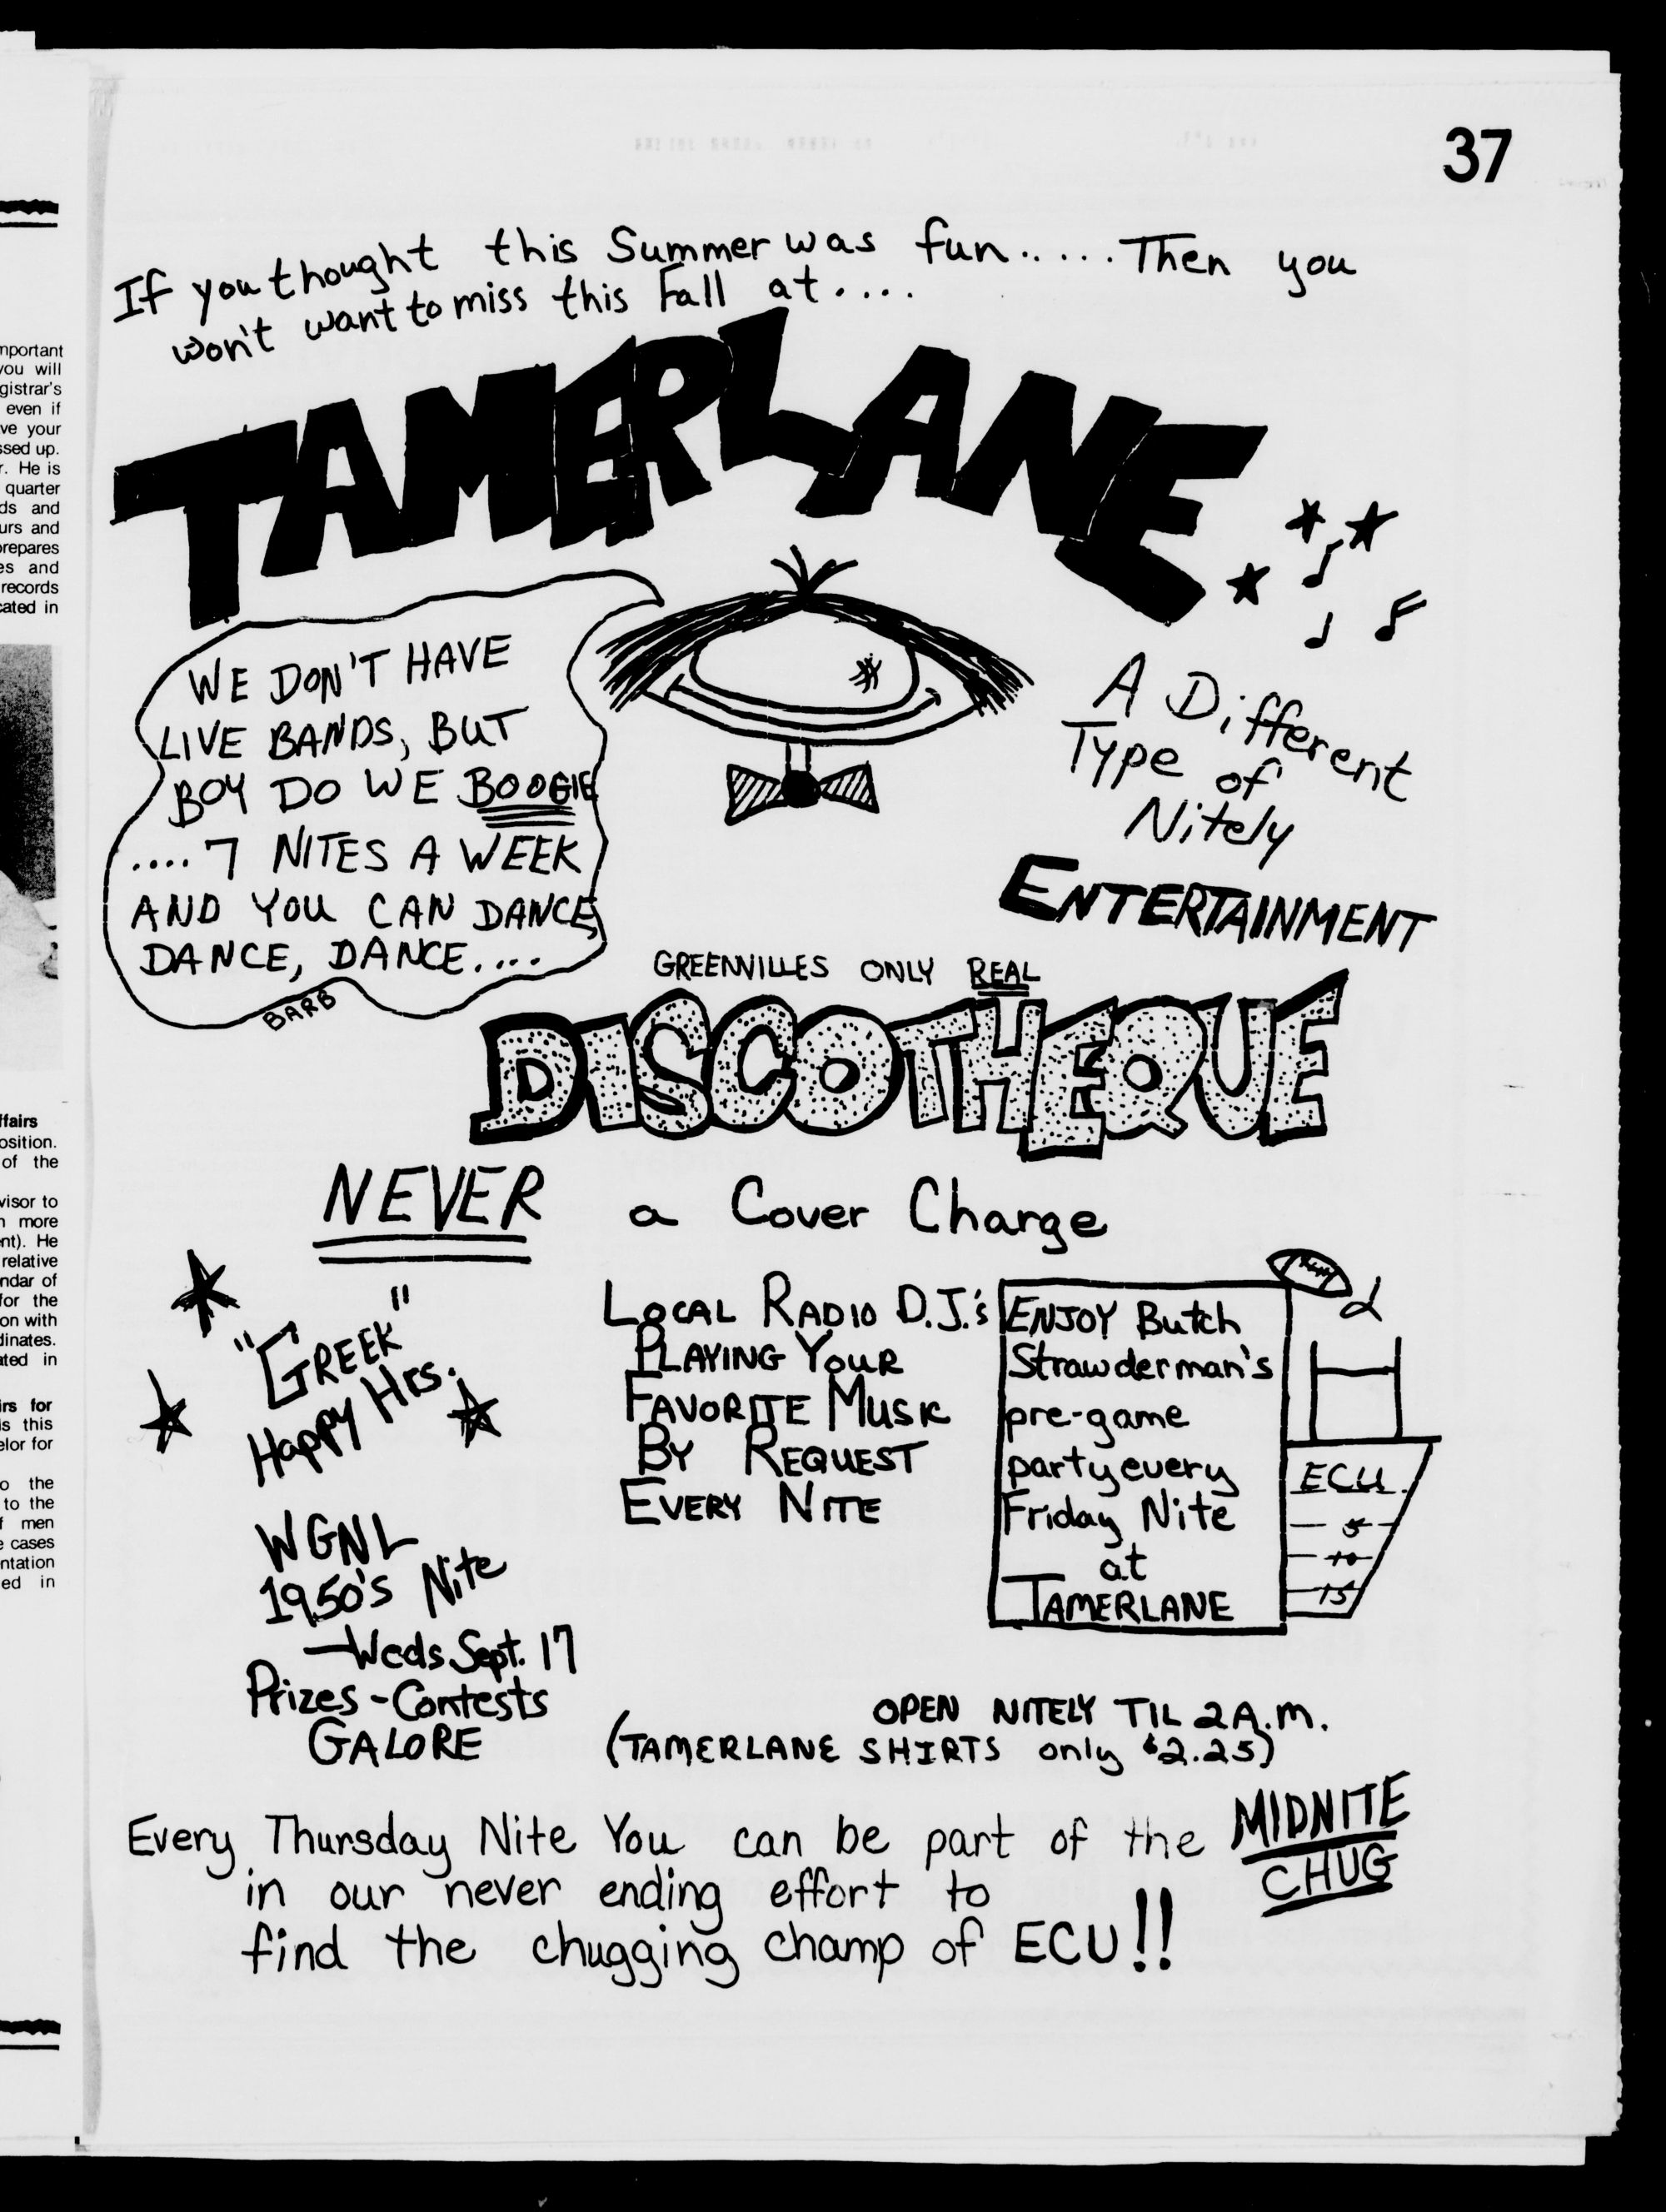 37
If you thought this Summer was fun..... Then you
won't want to miss this Fall at....
TAMERLANE
WE DON'T HAVE
LIVE BANDS, BUT
BOY DO WE BOOGIE
.... 7 NITES A WEEK
AND YOU CAN DANCE,
DANCE, DANCE....
BARB
A Different
Type of
Nitely
ENTERTAINMENT
GREENVILLES ONLY REAL
DISCOTHEQUE
NEVER a Cover Charge
"GREEK"
Happy Hrs.
WGNL
1950's Nite
—Weds. Sept. 17
Prizes - Contests
GALORE
LOCAL RADIO D.J.'s
PLAYING YOUR
FAVORITE MUSIC
BY REQUEST
EVERY NITE
ENJOY Butch
Strawderman's
pre-game
party every
Friday Nite
at
TAMERLANE
ECU
5
10
15
OPEN NITELY TIL 2 A.M.
(TAMERLANE SHIRTS only $2.25)
Every Thursday Nite You can be part of the MIDNITE
CHUG
in our never ending effort to
find the chugging champ of ECU!!
mportant
you will
gistrar's
even if
ve your
ssed up.
r. He is
quarter
ds and
urs and
prepares
es and
records
cated in
ffairs
osition.
of the
visor to
n more
nt). He
relative
ndar of
for the
on with
dinates.
ated in
irs for
is this
elor for
o the
to the
f men
e cases
ntation
ed in